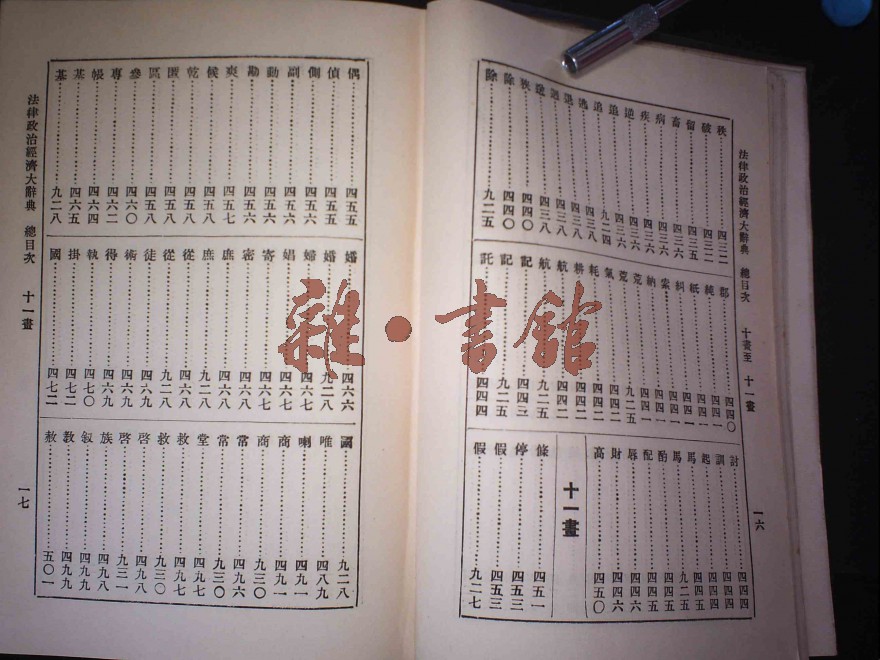 法律政治經濟大辭典 總目次 十畫至十一畫
秩……四三二
破……四三二
留……四三五
畜……四三六
病……四三六
疾……四三六
逆……四三六
追……四三六
追……九二四
逃……四三八
退……四三八
……四三八
……四三八
狹……四四〇
除……四四〇
除……九二五
郡……四四〇
純……四四一
紙……四四一
糾……四四一
索……四四一
納……四四一
荒……四四一
荒……九二五
氣……四四二
耗……四四二
耕……四四二
航……四四二
航……九二五
記……四四三
記……九二五
託……四四四
討……四四四
訓……四四四
起……四四四
馬……四四五
馬……九二五
酌……四四五
配……四四五
辱……四四六
財……四四六
高……四五〇
十一畫
條……四五一
停……四五三
假……四五三
假……九二七
一六
偶……四五五
偵……四五五
側……四五六
副……四五六
動……四五六
勘……四五六
爽……四五七
候……四五八
乾……四五八
匿……四五八
區……四五八
參……四六〇
專……四六二
帳……四六四
基……四六五
基……九二八
婚……四六六
婚……九二八
婦……四六七
娼……四六七
寄……四六七
密……四六八
庶……四六八
庶……九二八
從……四六八
從……九二八
徒……四六九
術……四六九
得……四六九
執……四七〇
掛……四七二
國……四七二
國……九二八
唯……四八九
喇……四九一
商……四九一
商……九三〇
常……四九六
常……九三〇
堂……四九七
救……四九七
救……九三〇
啓……四九八
啓……九三一
族……四九八
叙……四九九
教……四九九
赦……五〇一
法律政治經濟大辭典 總目次 十一畫
一七
雜·書館